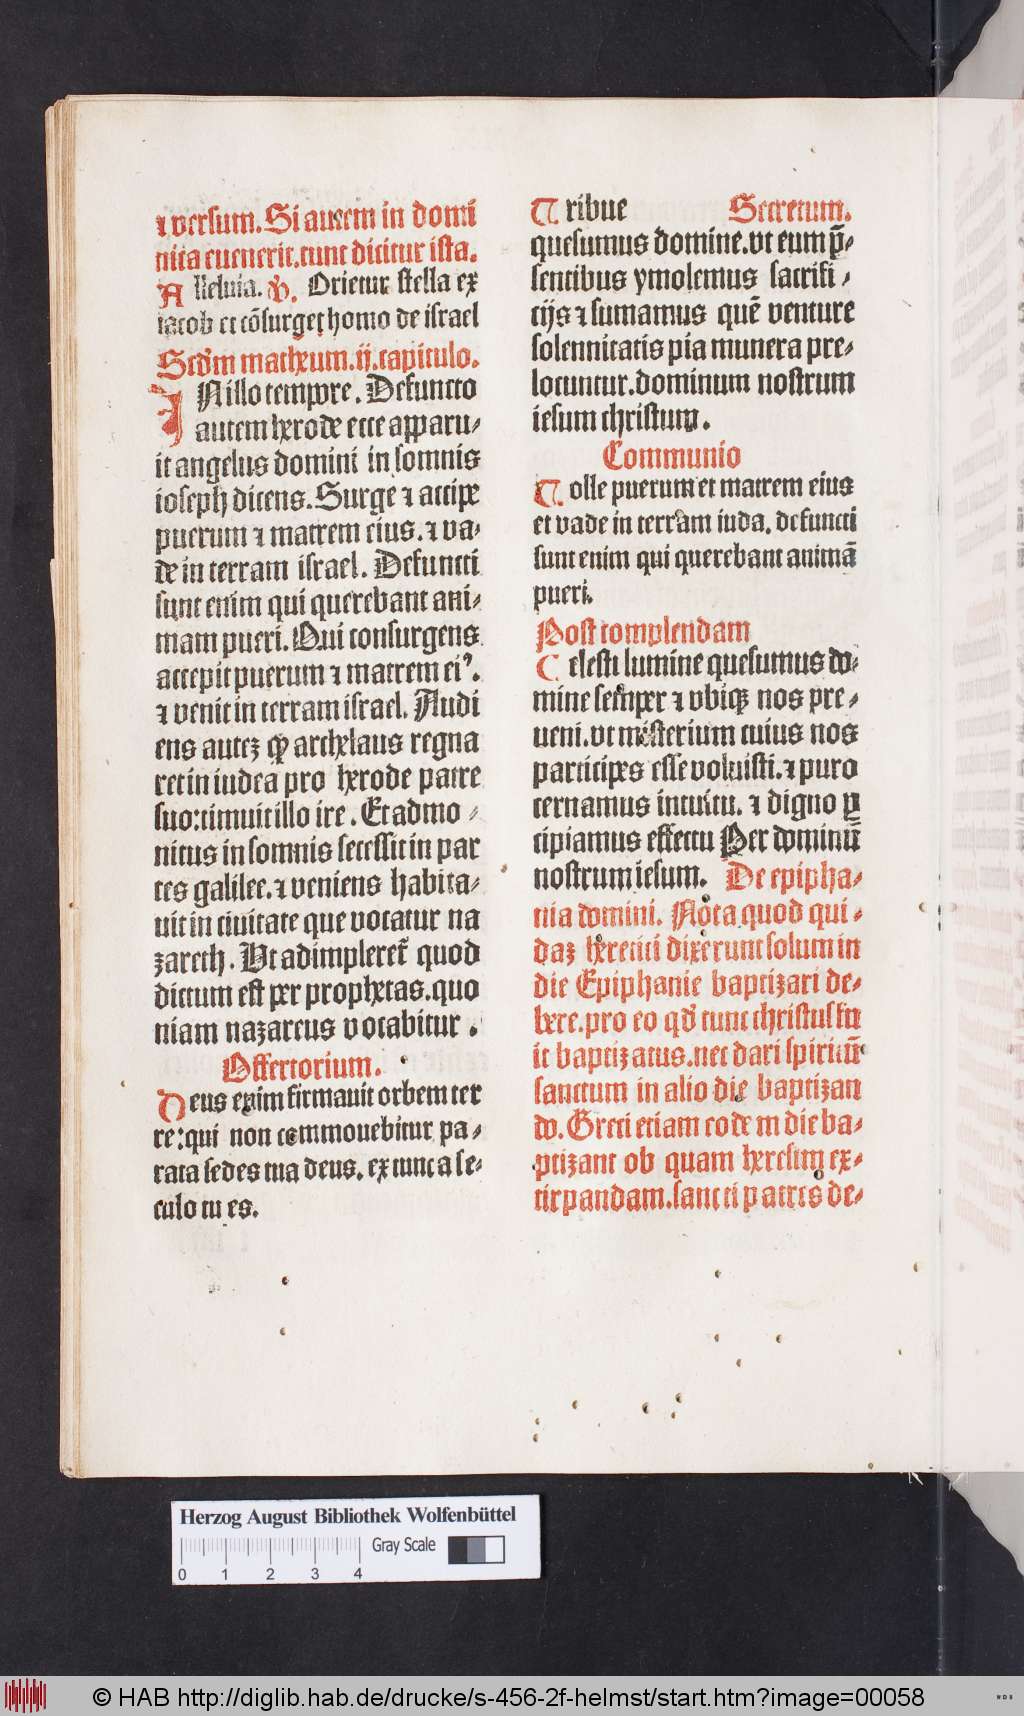 ⁊ versum. Si autem in domi
nica euenerit. tunc dicitur ista.
Alleluia. ℣. Orietur stella ex
iacob et cōsurget homo de israel
Scd'm matheum. ij. capitulo.
IN illo tempore. Defuncto
autem herode ecce apparu⸗
it angelus domini in somnis
ioseph dicens. Surge ⁊ accipe
puerum ⁊ matrem eius. ⁊ va⸗
de in terram israel. Defuncti
sunt enim qui querebant ani⸗
mam pueri. Qui consurgens
accepit puerum ⁊ matrem eiꝰ.
⁊ venit in terram israel. Audi
ens autez ꝙ archelaus regna
ret in iudea pro herode patre
suo: timuit illo ire. Et admo⸗
nitus in somnis secessit in par
tes galilee. ⁊ veniens habita⸗
uit in ciuitate que vocatur na
zareth. Vt adimpleret᷑ quod
dictum est per prophetas. quo
niam nazareus vocabitur.
Offertorium.
Deus enim firmauit orbem ter
re: qui non commouebitur pa⸗
rata sedes tua deus. ex tunc a se⸗
culo tu es.
Tribue Secretum.
quesumus domine. vt eum p̄⸗
sentibus ymolemus sacrifi⸗
cijs ⁊ sumamus quē venture
solennitatis pia munera pre⸗
locuntur. dominum nostrum
iesum christum.
Communio
Tolle puerum et matrem eius
et vade in terram iuda. defuncti
sunt enim qui querebant animā
pueri.
Post complendam
Celesti lumine quesumus do⸗
mine semper ⁊ vbiqꝫ nos pre⸗
ueni. vt misterium cuius nos
participes esse voluisti. ⁊ puro
cernamus intuitu. ⁊ digno ꝑ
cipiamus effectu Per dominū
nostrum iesum. De epipha⸗
nia domini. Nota quod qui⸗
daz heretici dixerunt solum in
die Epiphanie baptizari de⸗
bere. pro eo qd' tunc christus fu
it baptizatus. nec dari spiritū
sanctum in alio die baptizan
do. Greci etiam eodem die ba⸗
ptizant ob quam heresim ex⸗
tirpandam. sancti patres de⸗
Herzog August Bibliothek Wolfenbüttel
0 1 2 3 4 Gray Scale
© HAB http://diglib.hab.de/drucke/s-456-2f-helmst/start.htm?image=00058